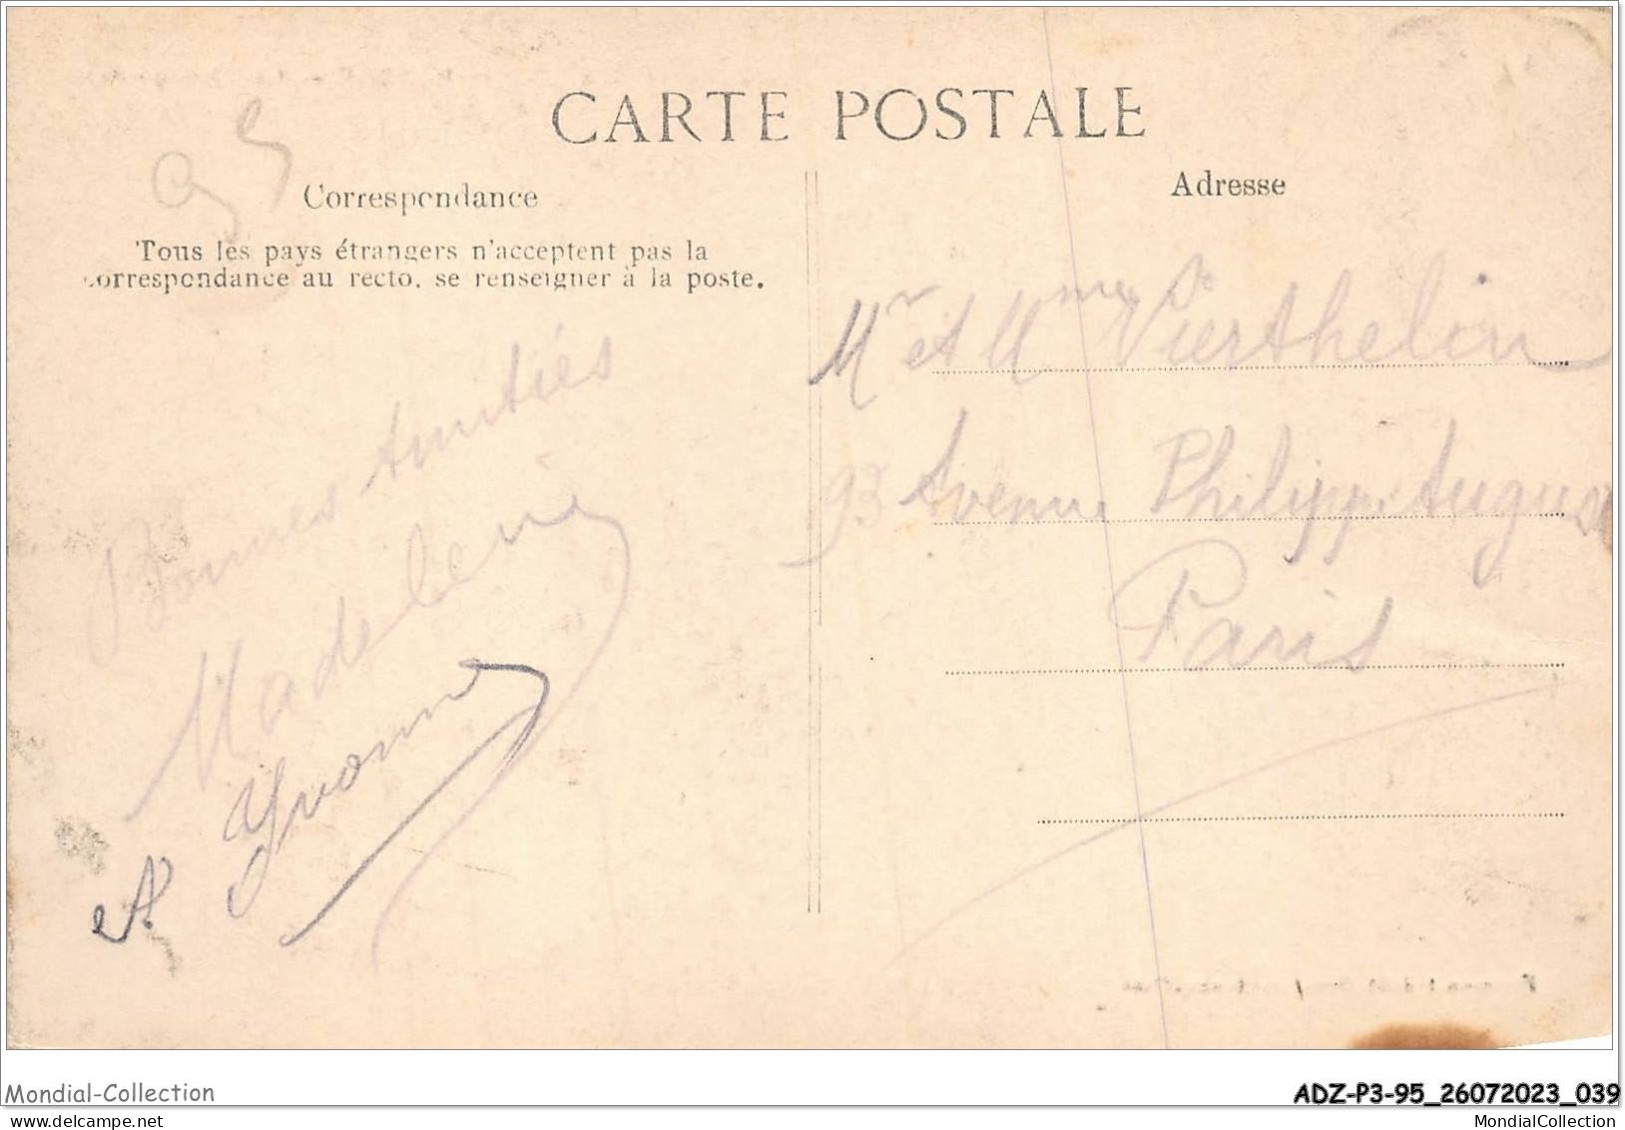 CARTE POSTALE
95
Correspondance
Adresse
Tous les pays étrangers n'acceptent pas la
correspondance au recto, se renseigner à la poste.
Bonnes Amitiés
Madeleine
et Yvonne
Mr et Mme Vierthelin
93 Avenue Philippe Auguste
Paris
Mondial-Collection
ADZ-P3-95_26072023_039
MondialCollection